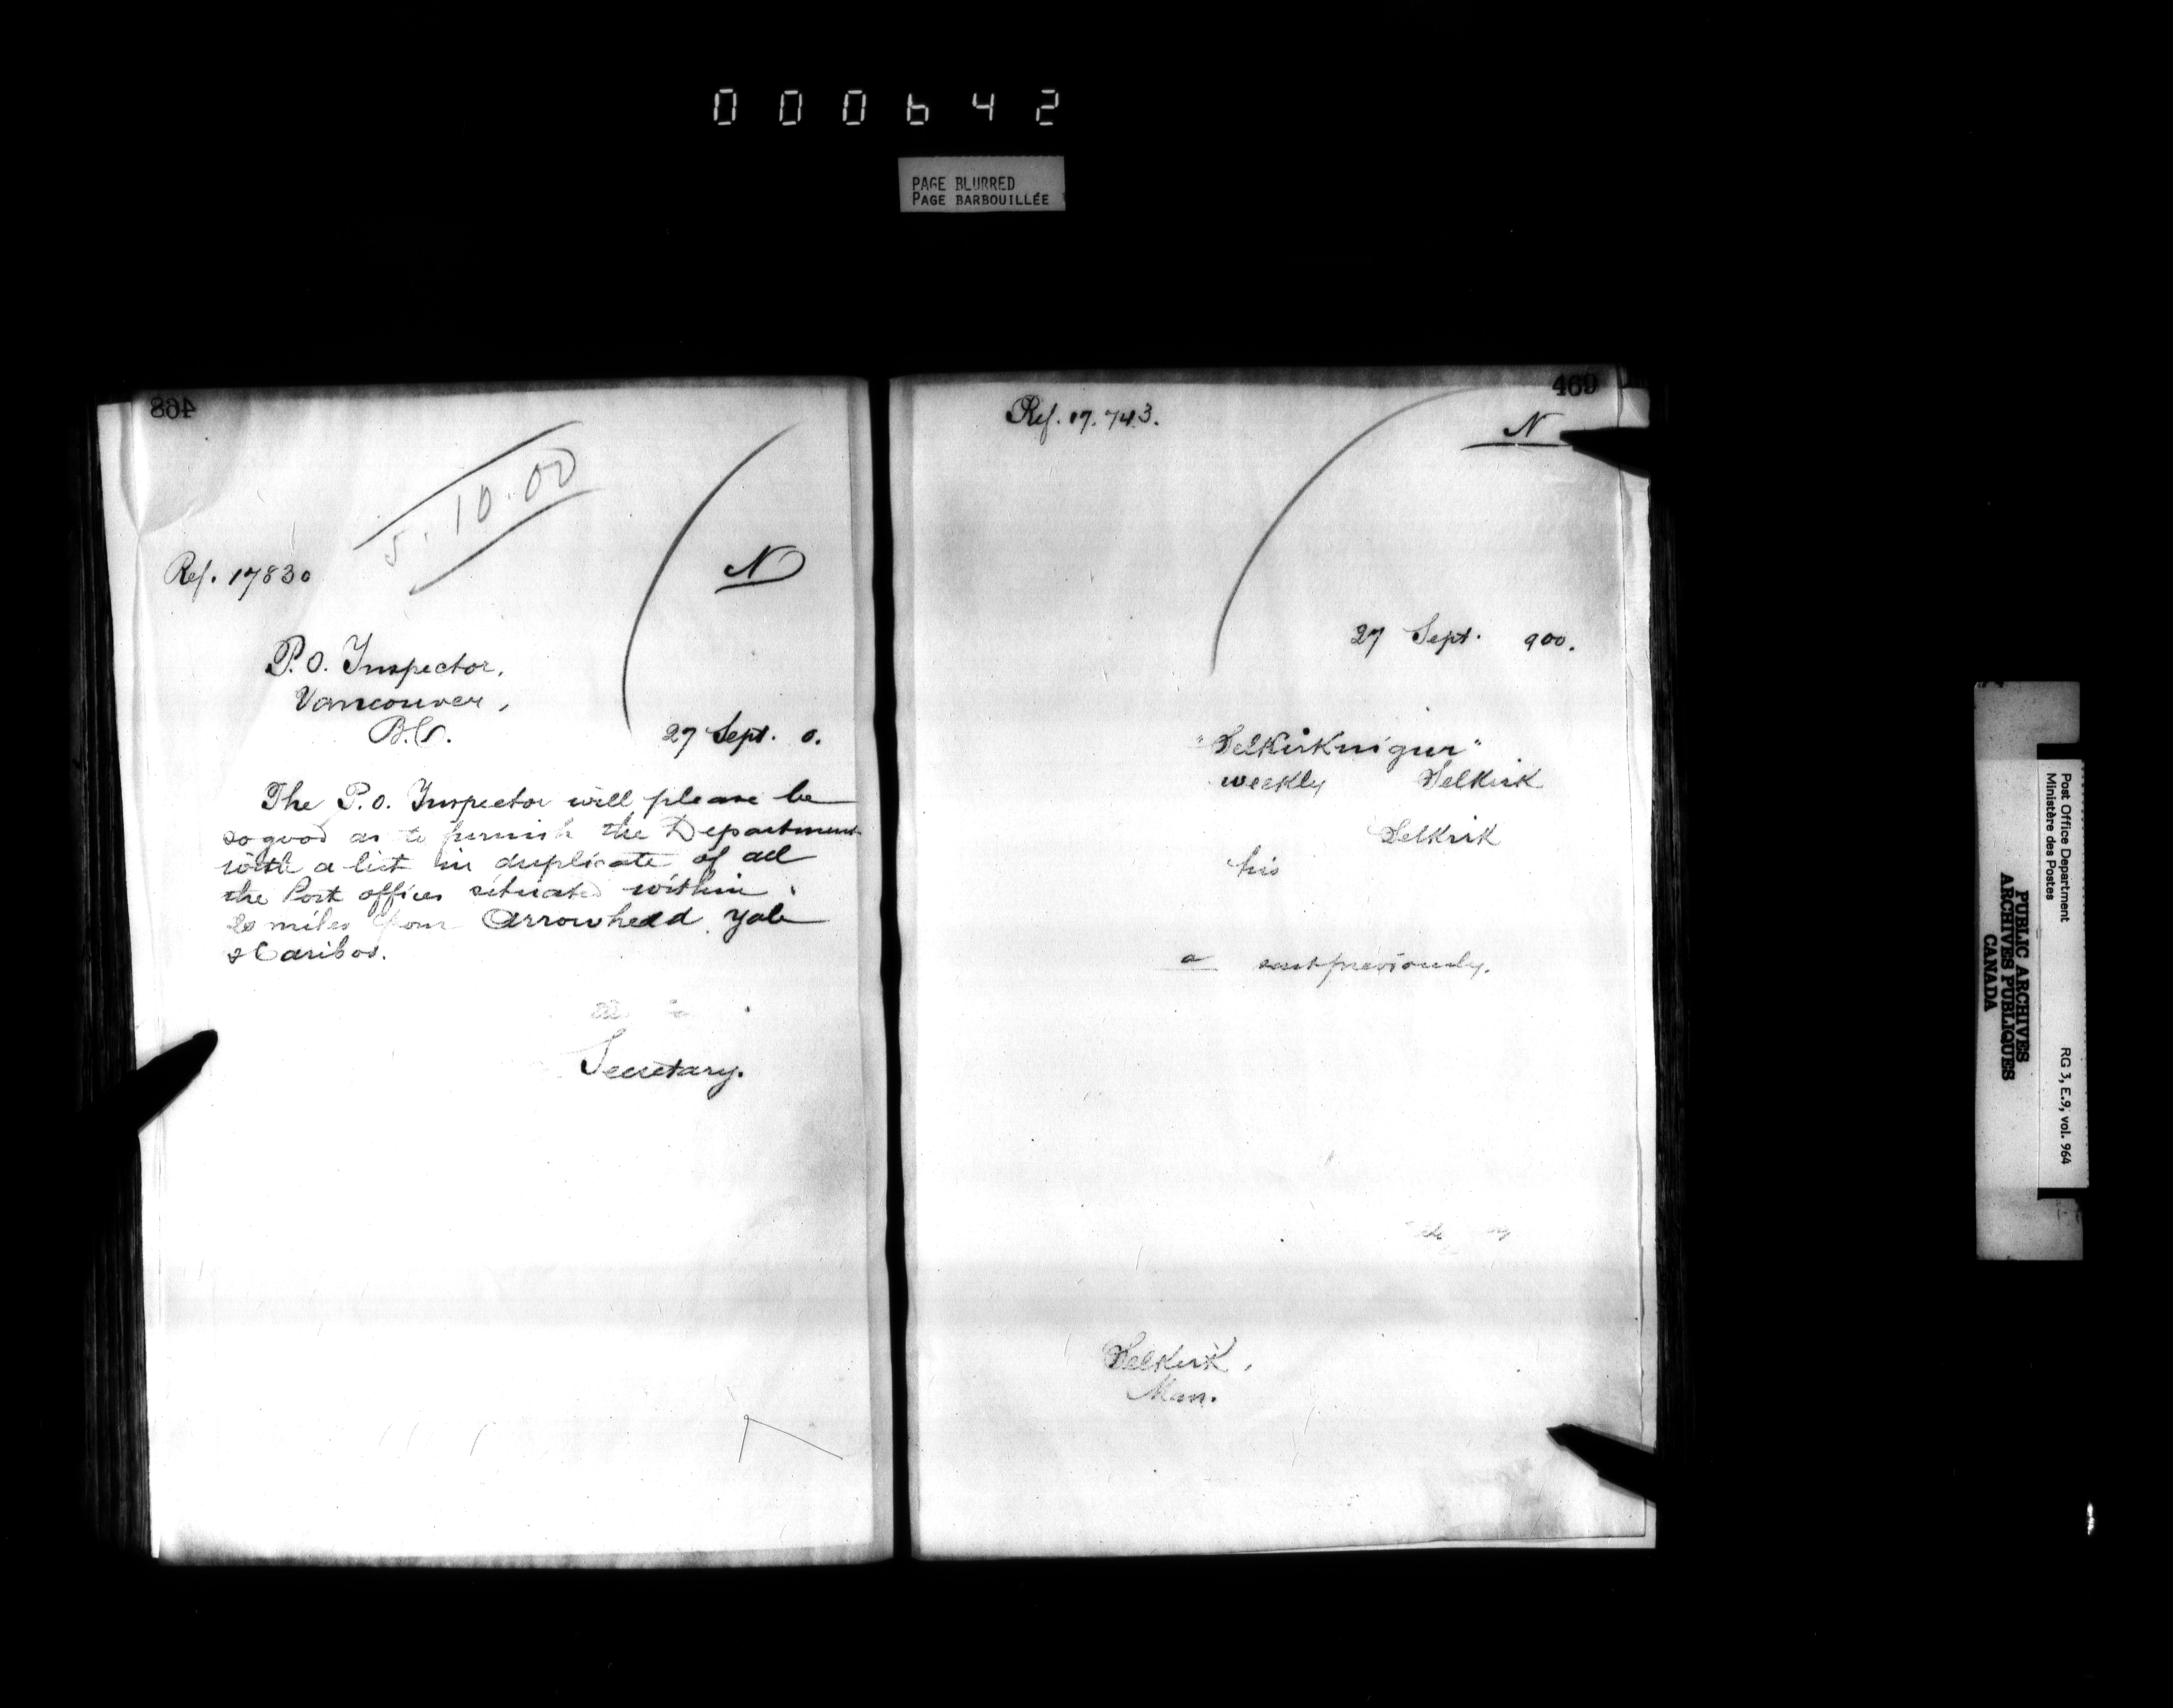 000642
PAGE BLURRED
PAGE BARBOUILLÉE
468
5.10.00
N
Ref. 17830
P.O. Inspector,
Vancouver,
B.C.
27 Sept. 0.
The P.O. Inspector will please be
so good as to furnish the Department
with a list in duplicate of all
the Post offices situated within
20 miles from Arrowhead, Yale
& Cariboo.
Secretary.
469
Ref. 17.743.
N
27 Sept. 900.
"Selkirknigur"
weekly Selkirk
Selkirk
his
a sent previously.
Selkirk,
Man.
Post Office Department
Ministère des Postes
RG 3, E.9, vol. 964
PUBLIC ARCHIVES
ARCHIVES PUBLIQUES
CANADA